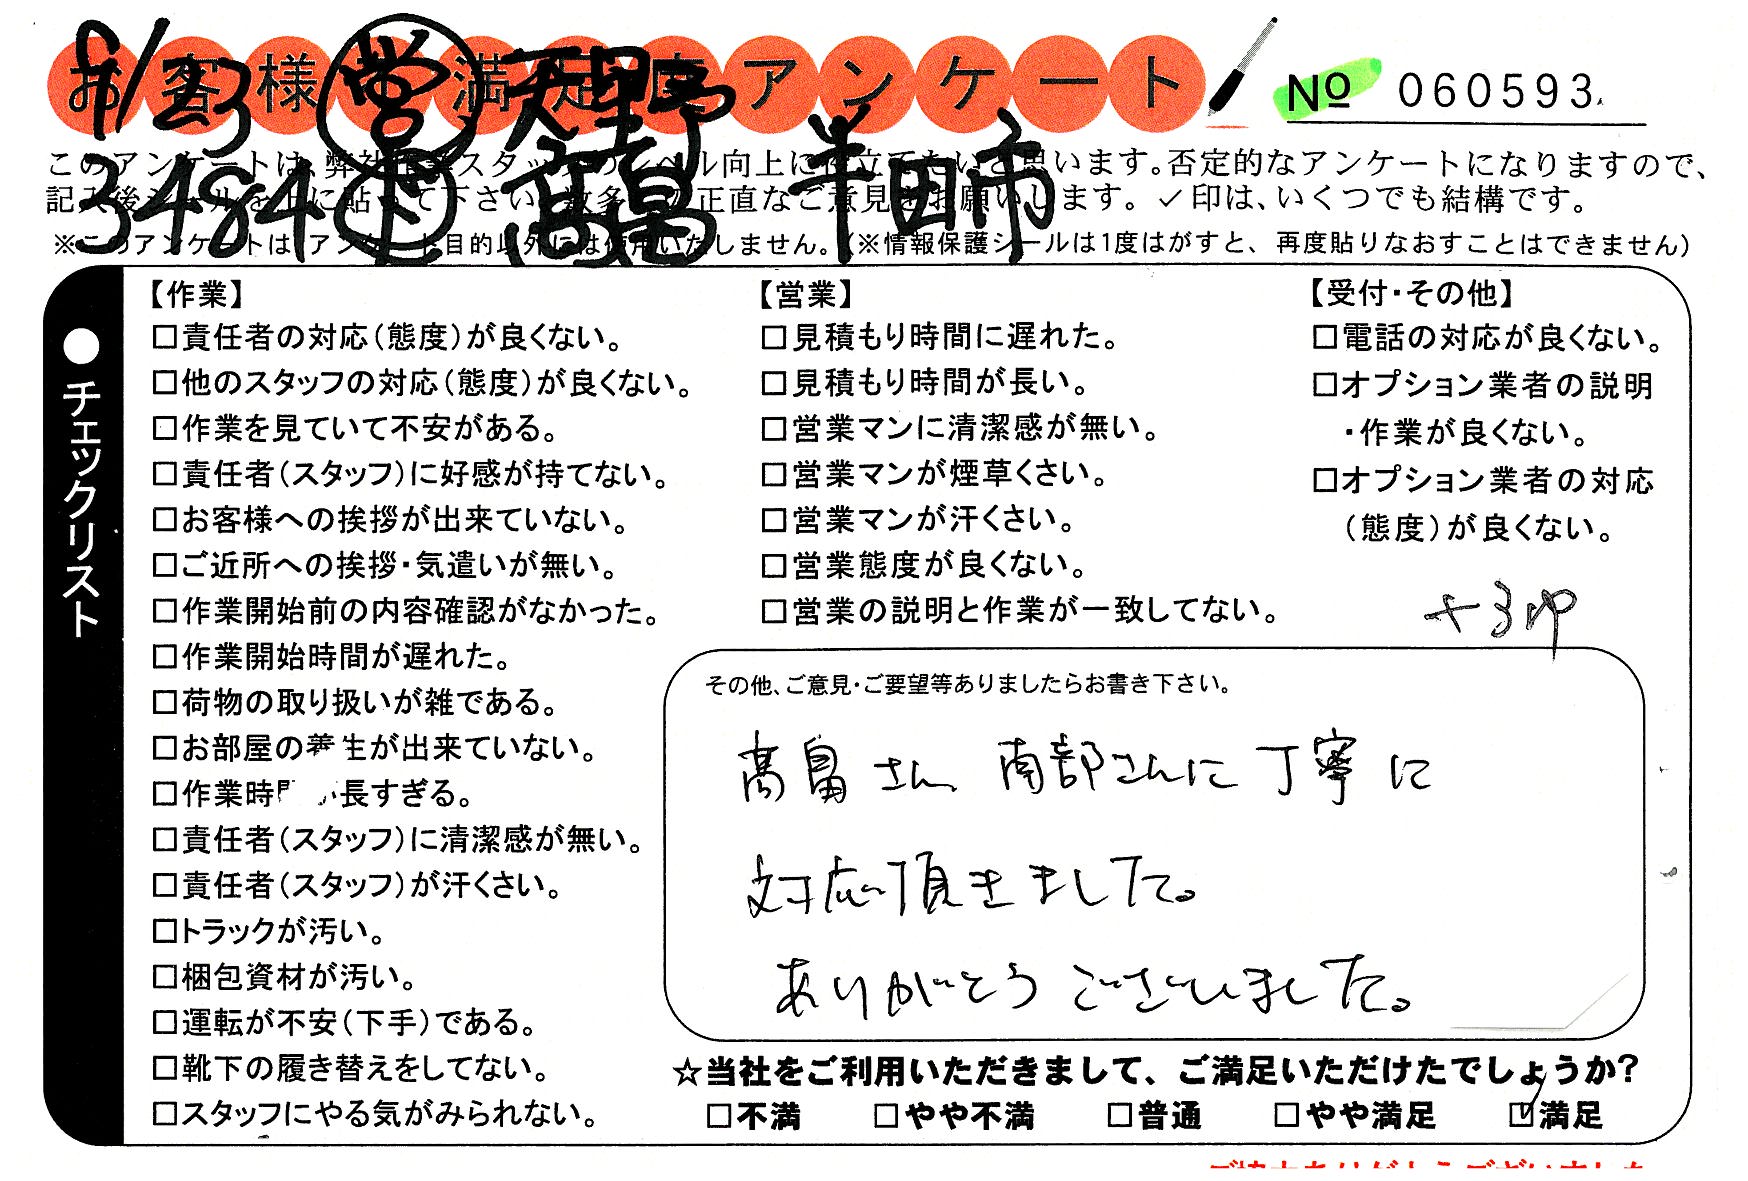 お客様満足度アンケート No 060593
8/23 営 天野
3484 下 高畠 半田市
このアンケートは、弊社スタッフのレベル向上に役立てたいと思います。否定的なアンケートになりますので、
記入後シールを上に貼って下さい。数多くの正直なご意見をお願いします。✓印は、いくつでも結構です。
※このアンケートは、アンケート目的以外には使用いたしません。(※情報保護シールは1度はがすと、再度貼りなおすことはできません)
●チェックリスト
【作業】
□責任者の対応(態度)が良くない。
□他のスタッフの対応(態度)が良くない。
□作業を見ていて不安がある。
□責任者(スタッフ)に好感が持てない。
□お客様への挨拶が出来ていない。
□ご近所への挨拶・気遣いが無い。
□作業開始前の内容確認がなかった。
□作業開始時間が遅れた。
□荷物の取り扱いが雑である。
□お部屋の養生が出来ていない。
□作業時間が長すぎる。
□責任者(スタッフ)に清潔感が無い。
□責任者(スタッフ)が汗くさい。
□トラックが汚い。
□梱包資材が汚い。
□運転が不安(下手)である。
□靴下の履き替えをしてない。
□スタッフにやる気がみられない。
【営業】
□見積もり時間に遅れた。
□見積もり時間が長い。
□営業マンに清潔感が無い。
□営業マンが煙草くさい。
□営業マンが汗くさい。
□営業態度が良くない。
□営業の説明と作業が一致してない。
【受付・その他】
□電話の対応が良くない。
□オプション業者の説明
・作業が良くない。
□オプション業者の対応
(態度)が良くない。
+3ゆ
その他、ご意見・ご要望等ありましたらお書き下さい。
高畠さん、南部さんに丁寧に
対応頂きました。
ありがとうございました。
☆当社をご利用いただきまして、ご満足いただけたでしょうか?
□不満 □やや不満 □普通 □やや満足 ☑満足
ご協力ありがとうございました